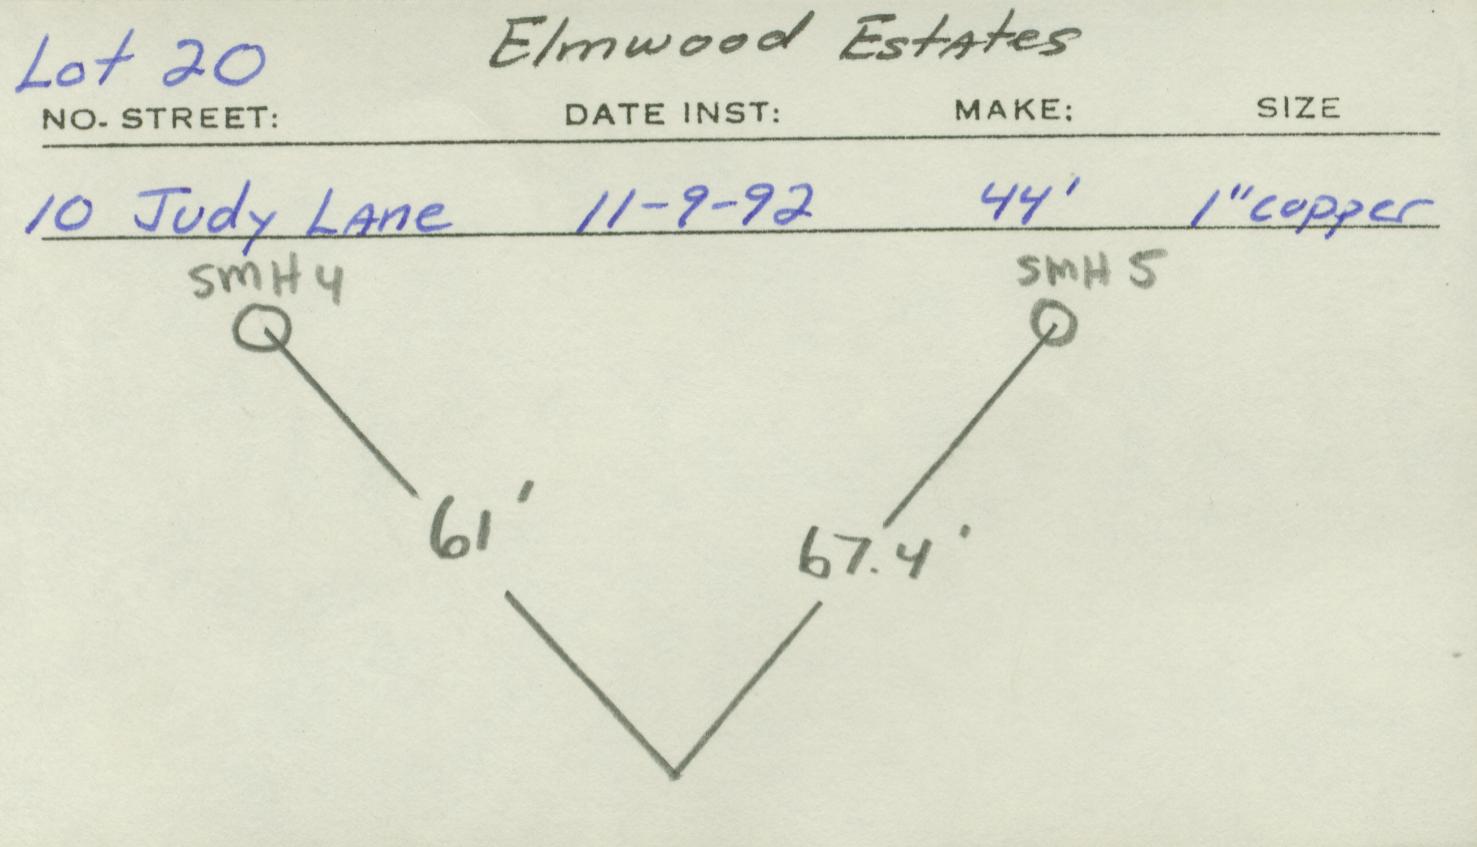 Lot 20 Elmwood Estates
NO. STREET: DATE INST: MAKE: SIZE
10 Judy Lane 11-9-92 44' 1" copper
SMH 4 SMH 5
61' 67.4'